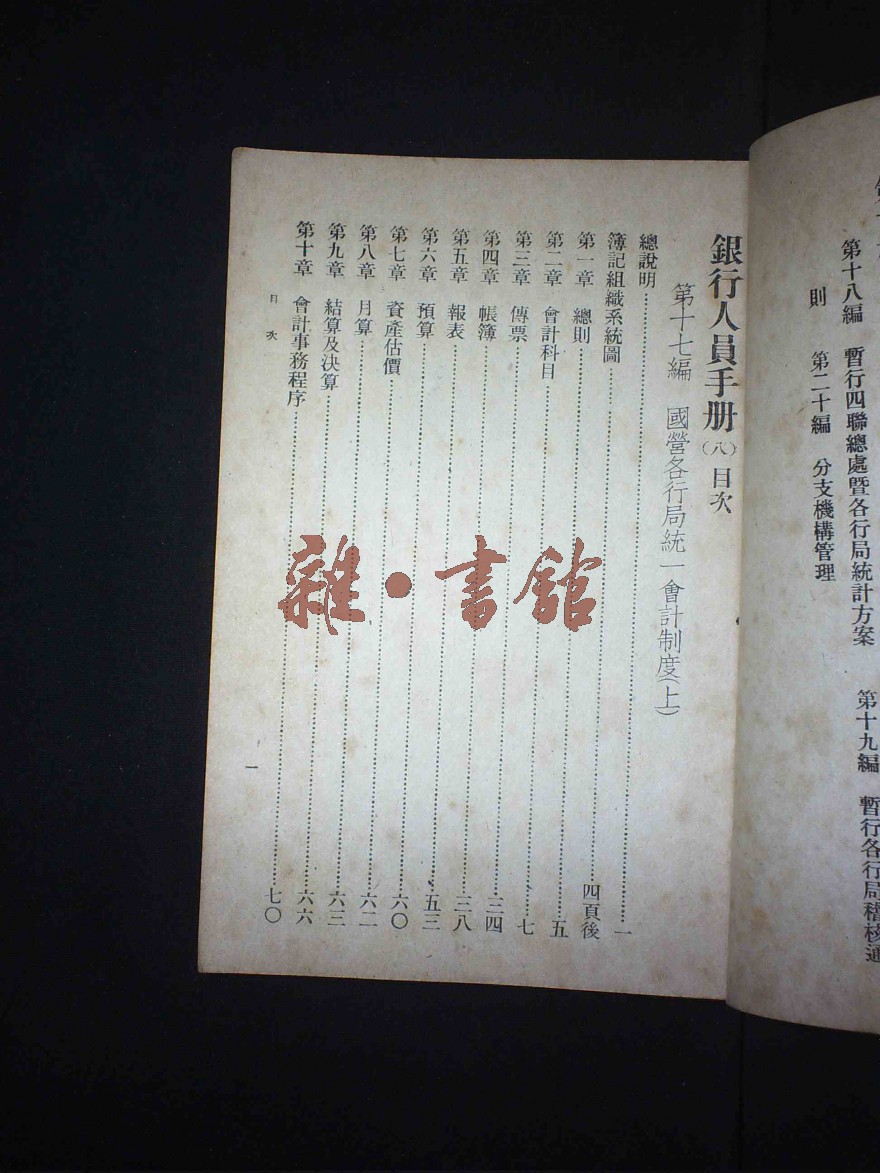 第十八編 暫行四聯總處暨各行局統計方案 第十九編 暫行各行局稽核通
則 第二十編 分支機構管理
銀行人員手册(八)目次
第十七編 國營各行局統一會計制度(上)
總說明……一
簿記組織系統圖……四頁後
第一章 總則……五
第二章 會計科目……七
第三章 傳票……三四
第四章 帳簿……三八
第五章 報表……五三
第六章 預算……六〇
第七章 資產估價……六二
第八章 月算……六三
第九章 結算及決算……六六
第十章 會計事務程序……七〇
目次
一
雜·書館